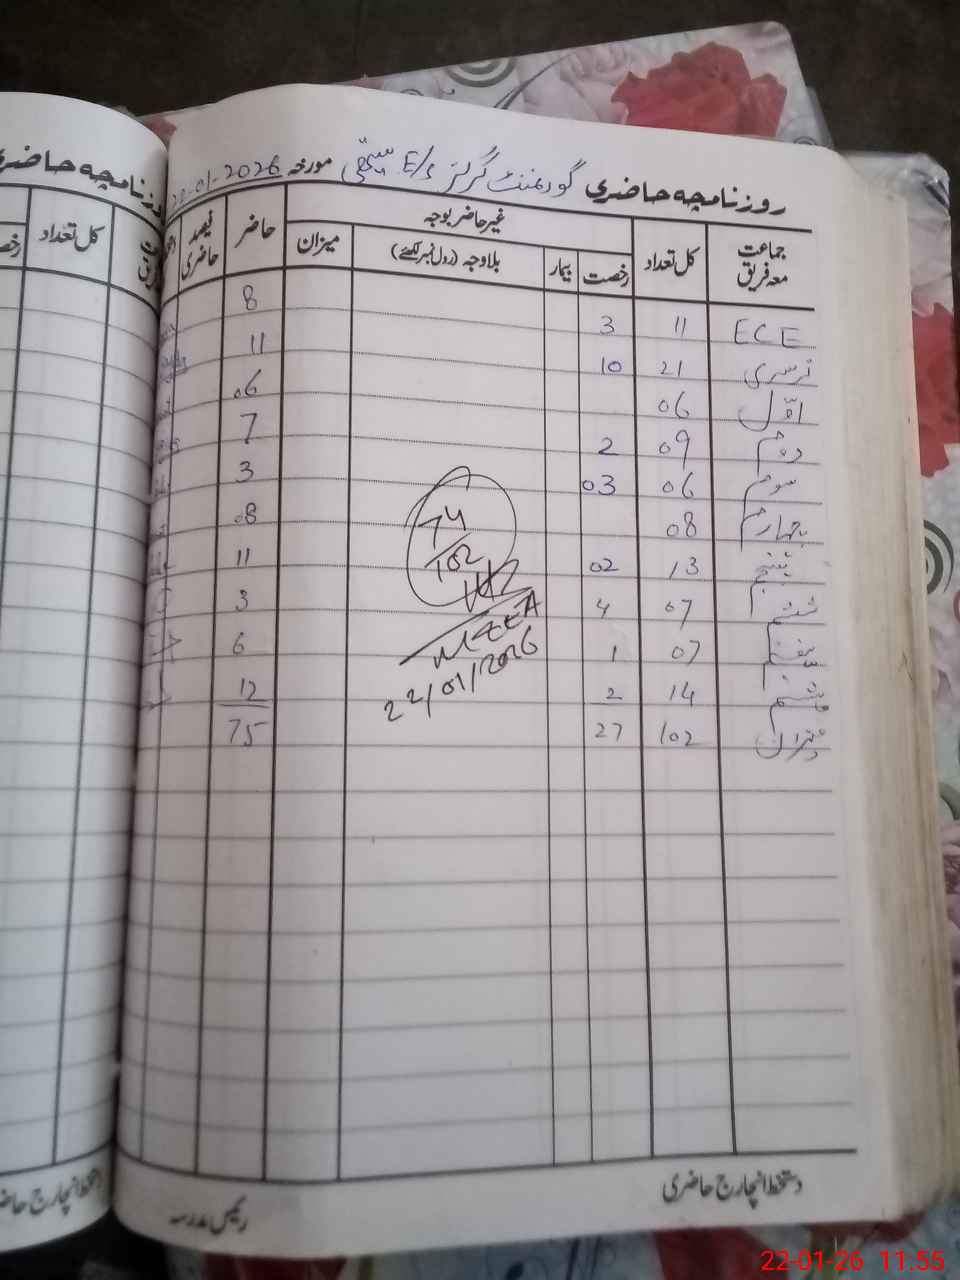 روزنامچہ حاضری گورنمنٹ گرلز E/S مورخہ 22-01-2026
جماعت معہ فریق کل تعداد غیر حاضر بوجہ حاضر فیصد حاضری
رخصت بیمار بلاوجہ (رول نمبر لکھئے) میزان
ECE 11 3 8
نرسری 21 10 11
اوّل 06 06
دوم 09 2 7
سوم 06 03 3
چہارم 08 08
پنجم 13 02 11
ششم 07 4 3
ہفتم 07 1 6
ہشتم 14 2 12
میزان 102 27 75
74/102
MEEA
22/01/2026
دستخط انچارج حاضری
رئیس مدرسہ
روزنامچہ حاضری
کل تعداد
22-01-26 11:55